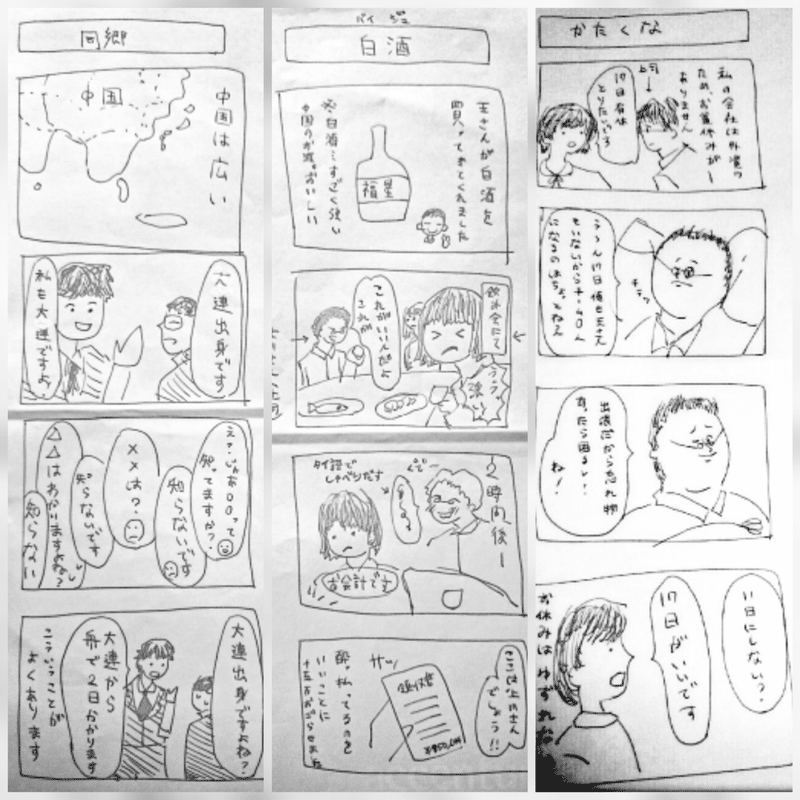 同郷
中国は広い
中国
大連出身です
私も大連ですよ
え?じゃあ○○って
知ってますか?
知らないです
××は?
知らないです
△△はわかりますよね?
知らない
大連出身ですよね?
大連から
舟で2日かかります
こういうことが
よくあります
バイジュ
白酒
王さんが白酒を
買ってきてくれました
福星
※白酒…すごく強い
中国のお酒。おいしい
飲み会にて
強い
これがいいんだよ
これが
2時間後ー
タイ語で
しゃべりだす
お会計です
ここは上司さん
でしょう!!
サッ
領収書
酔っ払ってるのを
いいことに
十五万おごらせました
かたくな
私の会社は外資の
ためお盆休みが
ありません
上司
17日有休
とりたいっす
うーん17日俺も王さんも
いないからチーム0人
になるのはちょっとねえ
チラッ
出張だから忘れ物
あったら困るし…
ね!
11日にしない?
17日がいいです
お休みはゆずれない